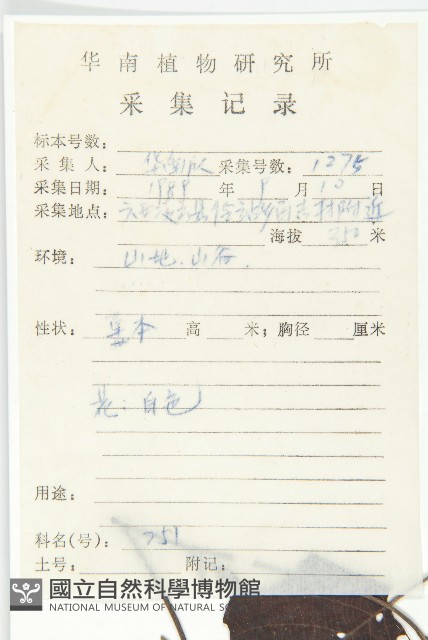 华南植物研究所
采集记录
标本号数：
采集人：华南队 采集号数：1275
采集日期：1988年9月10日
采集地点：村附近
海拔350米
环境：山地.山谷.
性状：草本 高 米；胸径 厘米
花：白色
用途：
科名(号)：751
土号： 附记：
國立自然科學博物館
NATIONAL MUSEUM OF NATURAL SC